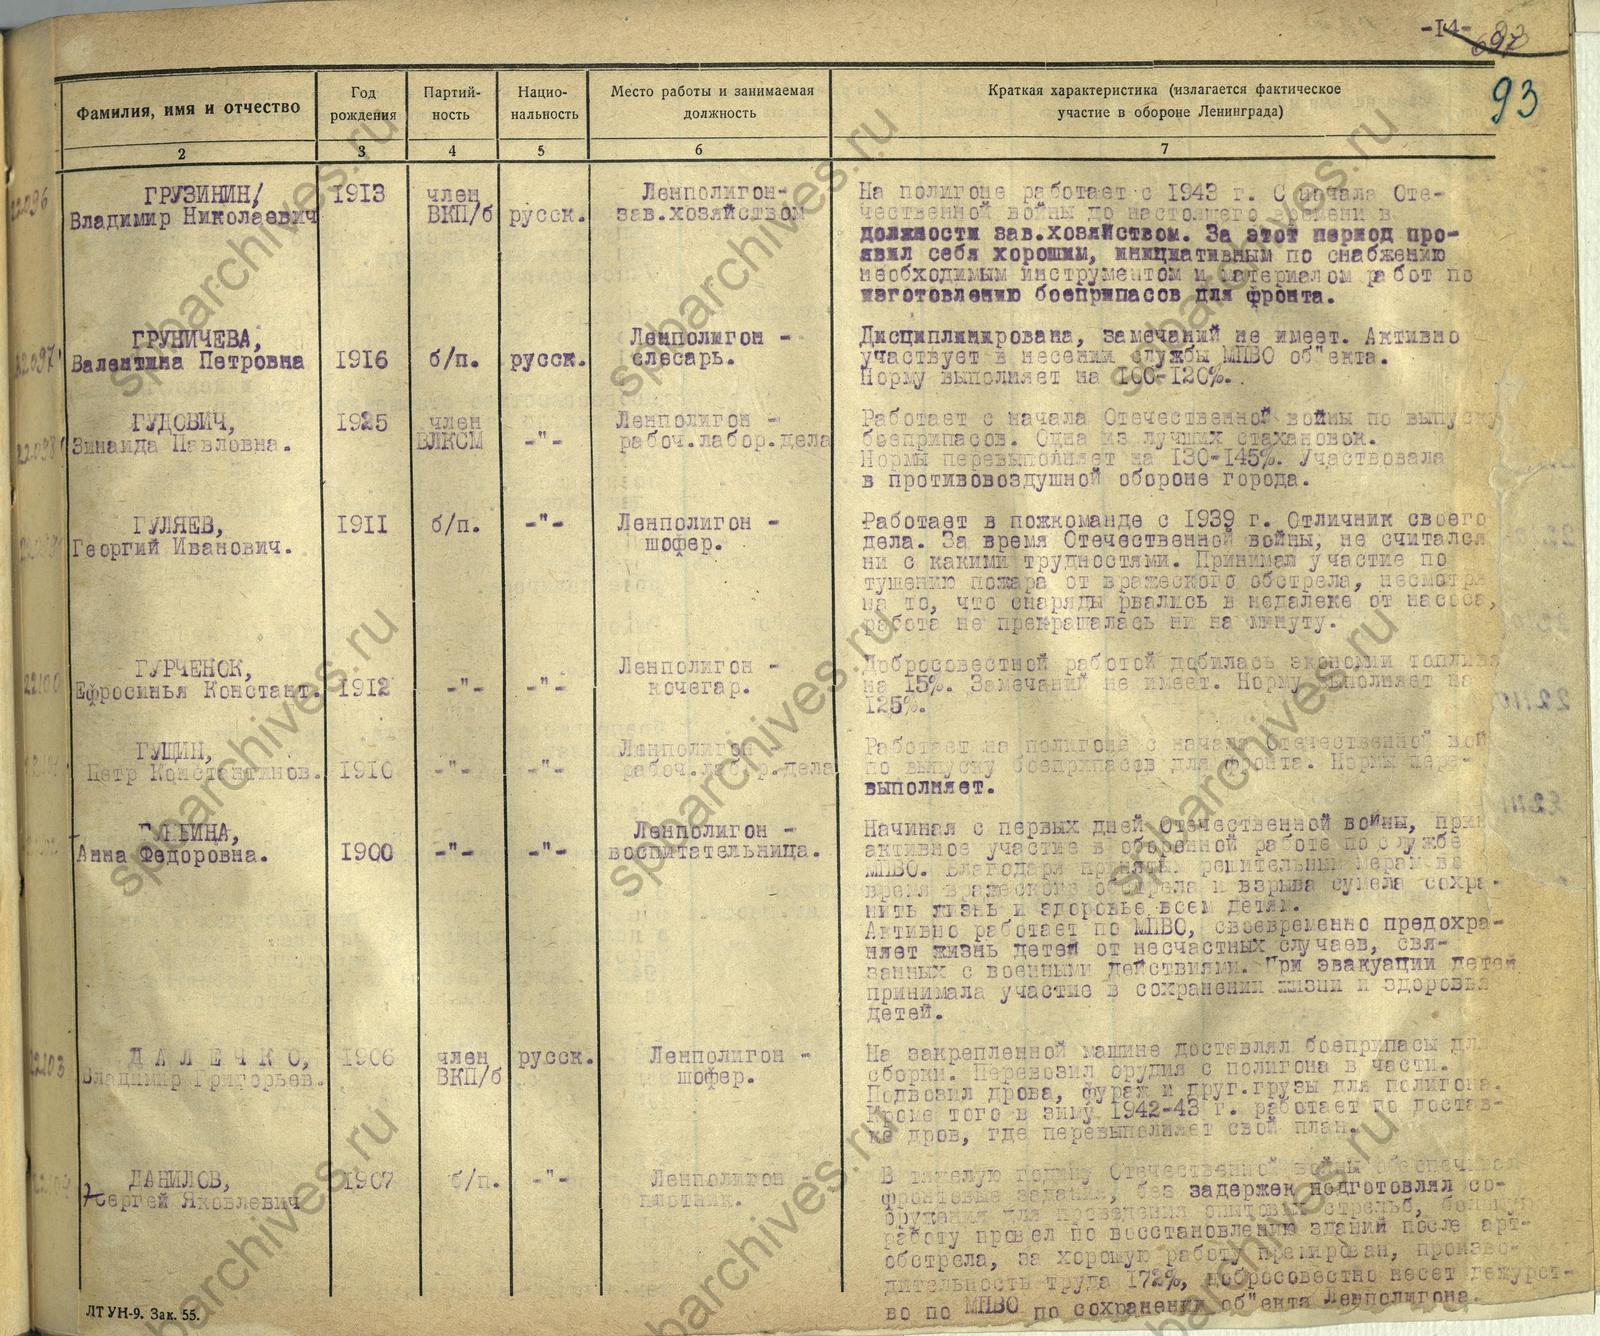 -14-
93
Фамилия, имя и отчество
Год рождения
Партий-ность
Нацио-нальность
Место работы и занимаемая должность
Краткая характеристика (излагается фактическое участие в обороне Ленинграда)
2 3 4 5 6 7
22096
ГРУЗИНИН/ 1913 член Ленполигон-
Владимир Николаевич ВКП/б русск. зав.хозяйством
На полигоне работает с 1943 г. С начала Оте-
чественной войны до настоящего времени в
должности зав.хозяйством. За этот период про-
явил себя хорошим, инициативным по снабжению
необходимым инструментом и материалом работ по
изготовлению боеприпасов для фронта.
22097
ГРУНИЧЕВА, Ленполигон -
Валентина Петровна 1916 б/п. русск. слесарь.
Дисциплинирована, замечаний не имеет. Активно
участвует в несении службы МПВО об"екта.
Норму выполняет на 100-120%.
22098
ГУДОВИЧ, 1925 член Ленполигон -
Зинаида Павловна. ВЛКСМ -"- рабоч.лабор.дела
Работает с начала Отечественной войны по выпуску
боеприпасов. Одна из лучших стахановок.
Нормы перевыполняет на 130-145%. Участвовала
в противовоздушной обороне города.
ГУЛЯЕВ, 1911 б/п. -"- Ленполигон -
Георгий Иванович. шофер.
Работает в пожкоманде с 1939 г. Отличник своего
дела. За время Отечественной войны, не считался
ни с какими трудностями. Принимал участие по
тушению пожара от вражеского обстрела, несмотря
на то, что снаряды рвались в недалеке от насоса,
работа не прекращалась ни на минуту.
22100
ГУРЧЕНОК, Ленполигон -
Ефросинья Констант. 1912 -"- -"- кочегар.
Добросовестной работой добилась экономии топлива
на 15%. Замечаний не имеет. Норму выполняет на
125%.
ГУЩИН, Ленполигон -
Петр Константинов. 1910 -"- -"- рабоч.лабор.дела
Работает на полигоне с начала Отечественной вой
по выпуску боеприпасов для фронта. Нормы пере-
выполняет.
Анна Федоровна. 1900 -"- -"- Ленполигон -
воспитательница.
Начиная с первых дней Отечественной войны, прин
активное участие в оборонной работе по службе
МПВО. Благодаря принятым решительным мерам во
время вражеского обстрела и взрыва сумела сохра-
нить жизнь и здоровье всем детям.
Активно работает по МПВО, своевременно предохра-
няет жизнь детей от несчастных случаев, свя-
занных с военными действиями. При эвакуации детей
принимала участие в сохранении жизни и здоровья
детей.
22103
ДАЛЕЧКО, 1906 член русск. Ленполигон -
Владимир Григорьев. ВКП/б шофер.
На закрепленной машине доставлял боеприпасы для
сборки. Перевозил орудия с полигона в части.
Подвозил дрова, фураж и друг.грузы для полигона.
Кроме того в зиму 1942-43 г. работает по достав-
ке дров, где перевыполняет свой план.
ДАНИЛОВ, 1907 б/п. -"- Ленполигон -
Сергей Яковлевич плотник.
В тяжелую годину Отечественной войны обеспечивал
фронтовые задания, без задержек подготовлял со-
оружения для проведения опытовых стрельб, большую
работу провел по восстановлению зданий после арт-
обстрела, за хорошую работу премирован, произво-
дительность труда 172%, добросовестно несет дежурст-
во по МПВО по сохранении об"екта Ленполигона.
ЛТ УН-9. Зак. 55.
spbarchives.ru
spbarchives.ru
spbarchives.ru
spbarchives.ru
spbarchives.ru
spbarchives.ru
spbarchives.ru
spbarchives.ru
spbarchives.ru